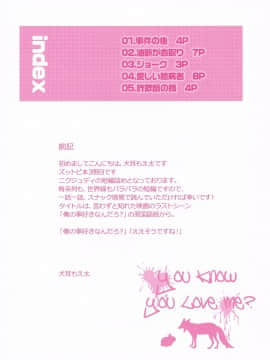 index
01.事件の後 4P
02.油断が命取り 7P
03.ジョーク 3P
04.愛しい臆病者 8P
05.詐欺師の顔 4P
前記
初めましてこんにちは。犬耳もえ太です
ズットピ本3冊目です
ニクジュディの短編詰めとなっております。
時系列も、世界線もバラバラの短編ですので、
一話一話、スナック感覚で読んでいただければ幸いです!
タイトルは、言わずと知れた映画のラストシーン
「僕の事好きなんだろ?」の英国語版から。
「僕の事好きなんだろ?」「ええそうですね!」
犬耳もえ太
You know
you love me?